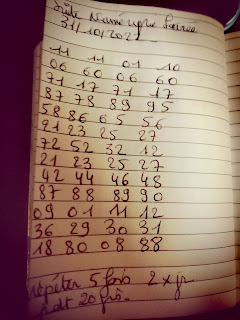 Suite Numérique Sacrée
31/10/2021
11 11 01 10
06 60 06 60
71 17 71 17
87 78 89 95
58 86 65 56
21 23 25 27
72 52 32 12
21 23 25 27
42 44 46 48
87 88 89 90
09 01 11 12
36 29 30 31
18 80 08 88
répéter 5 fois 2 x jr
20 frs.